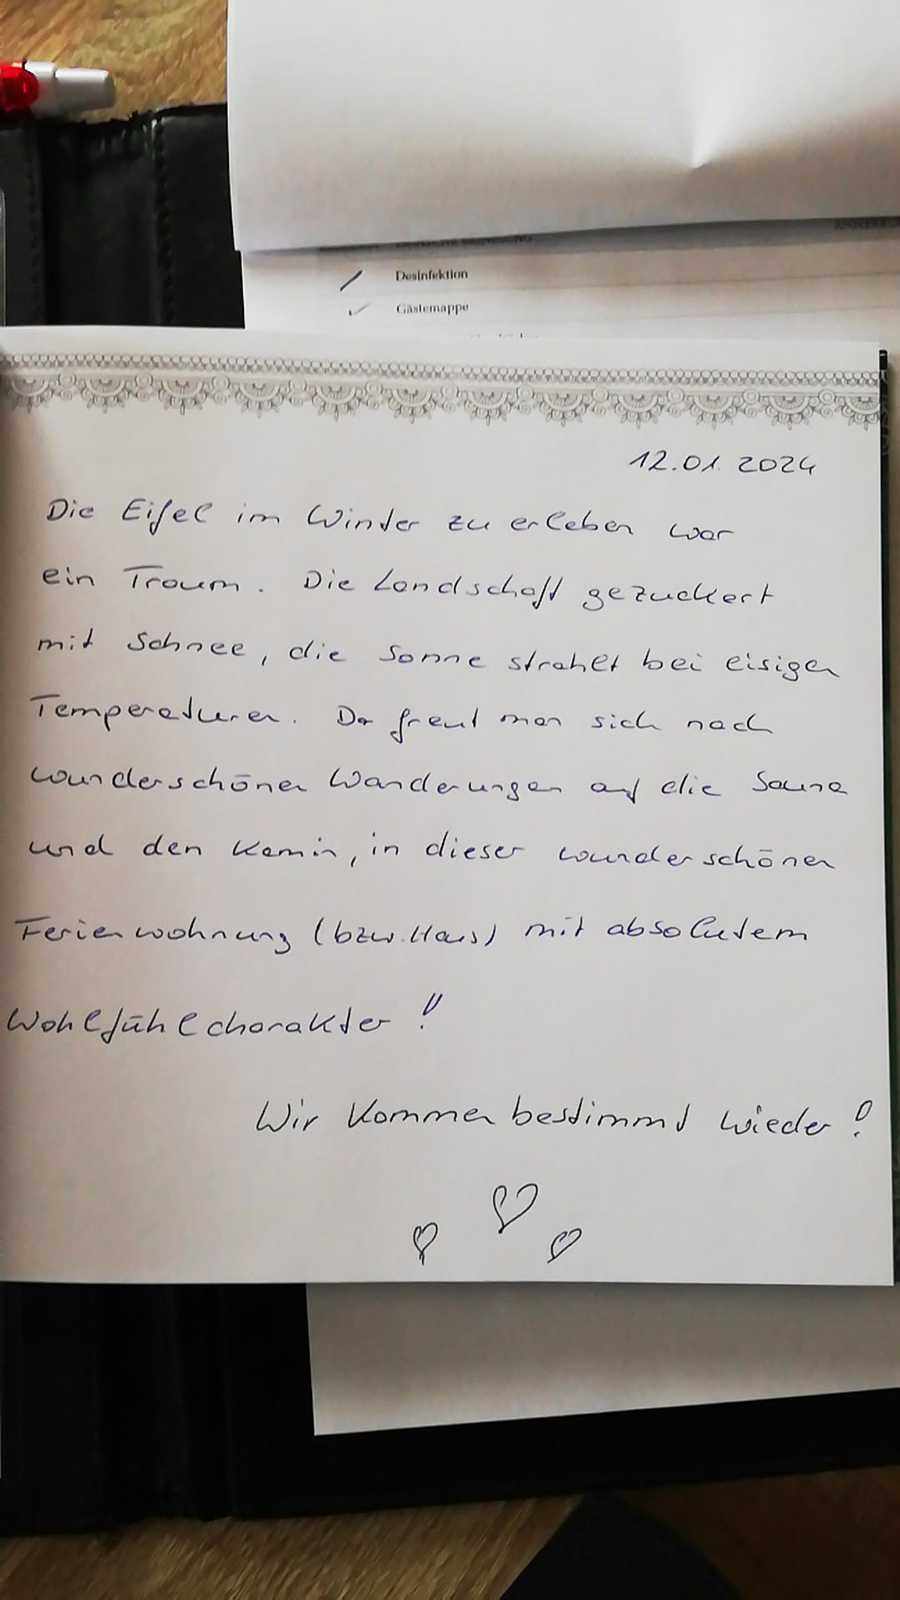 Desinfektion
Gästemappe
12.01.2024
Die Eifel im Winter zu erleben war
ein Traum. Die Landschaft gezuckert
mit Schnee, die Sonne strahlt bei eisigen
Temperaturen. Da freut man sich nach
wunderschönen Wanderungen auf die Sauna
und den Kamin, in dieser wunderschönen
Ferienwohnung (bzw. Haus) mit absolutem
Wohlfühlcharakter!!
Wir kommen bestimmt wieder!